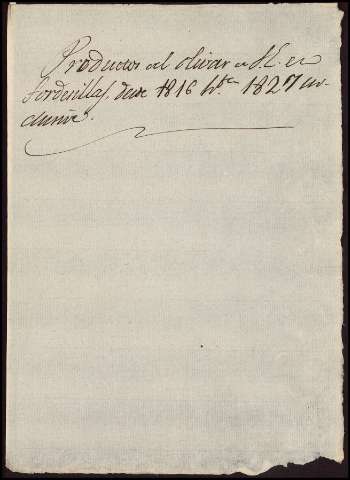 Productos del olivar de S.E. en
Tordesillas, desde 1816 hta. 1827 in-
clusive.